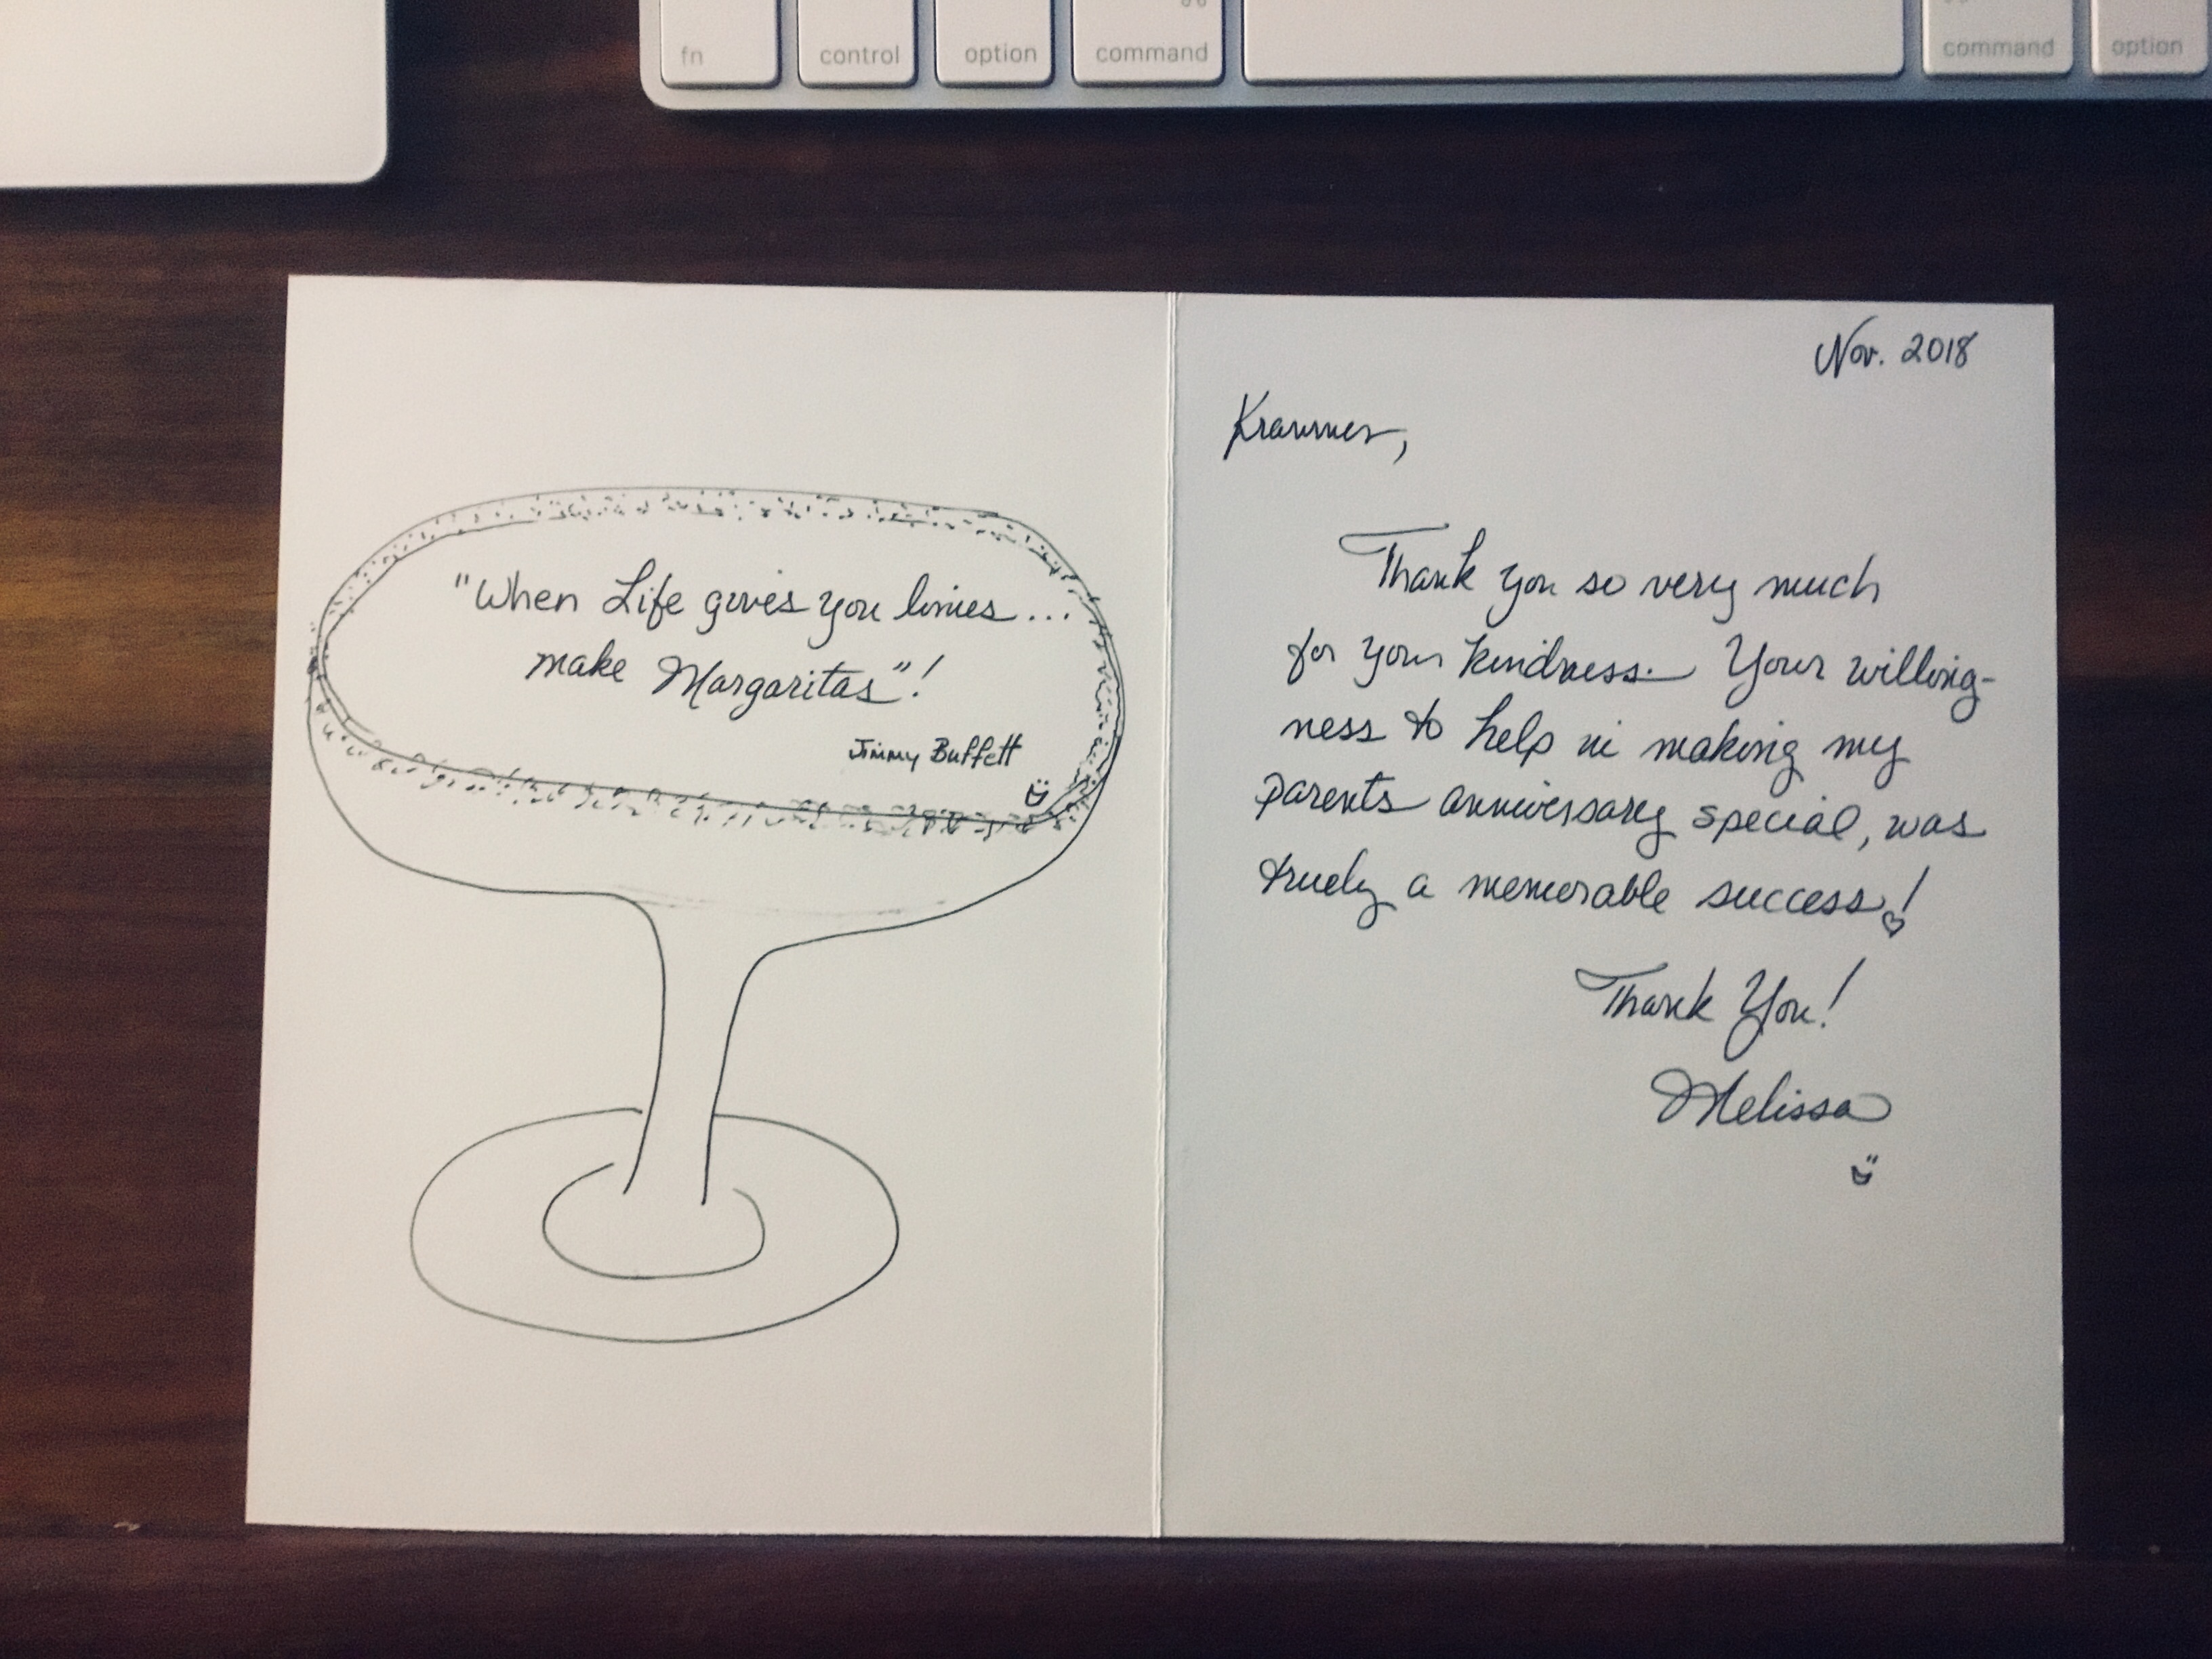 fn control option command command option
"When Life gives you limes...
make Margaritas"!
Jimmy Buffett
Nov. 2018
Krammer,
Thank you so very much
for your kindness. Your willing-
ness to help in making my
parents anniversary special, was
truely a memorable success!
Thank You!
Melissa